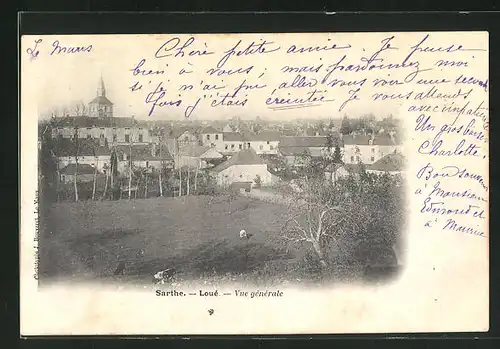 Le Mans
Chère petite amie. Je pense
bien à vous, mais pardonnez moi
si je n'ai pu aller vous voir une seconde
fois, j'étais éreintée Je vous attends
avec impatience
Un gros baiser
Charlotte.
Bonsoir
à Monsieur
Edmond et
à Maurice
Sarthe. — Loué. — Vue générale